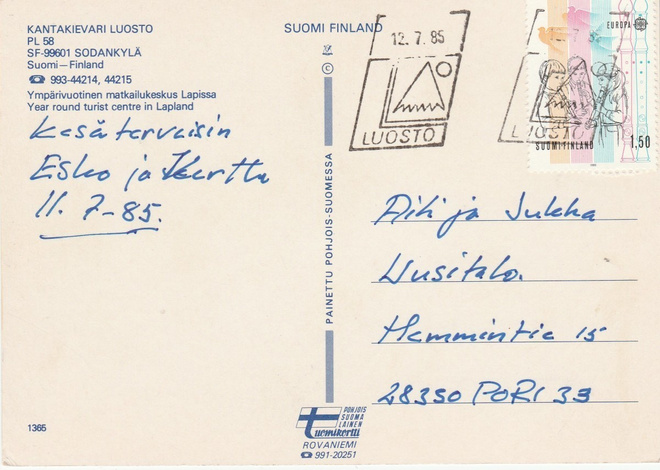 KANTAKIEVARI LUOSTO
PL 58
SF-99601 SODANKYLÄ
Suomi—Finland
☎ 993-44214, 44215
Ympärivuotinen matkailukeskus Lapissa
Year round turist centre in Lapland
Kesäterveisin
Esko ja Kerttu
11. 7-85.
1365
SUOMI FINLAND
©
PAINETTU POHJOIS-SUOMESSA
POHJOIS
SUOMA
LAINEN
Tuomikortti
ROVANIEMI
☎ 991-20251
12.7.85
LUOSTO
12.7.85
LUOSTO
EUROPA
SUOMI FINLAND
1,50
Aili ja Jukka
Uusitalo.
Hemmintie 15
28350 PORI 33